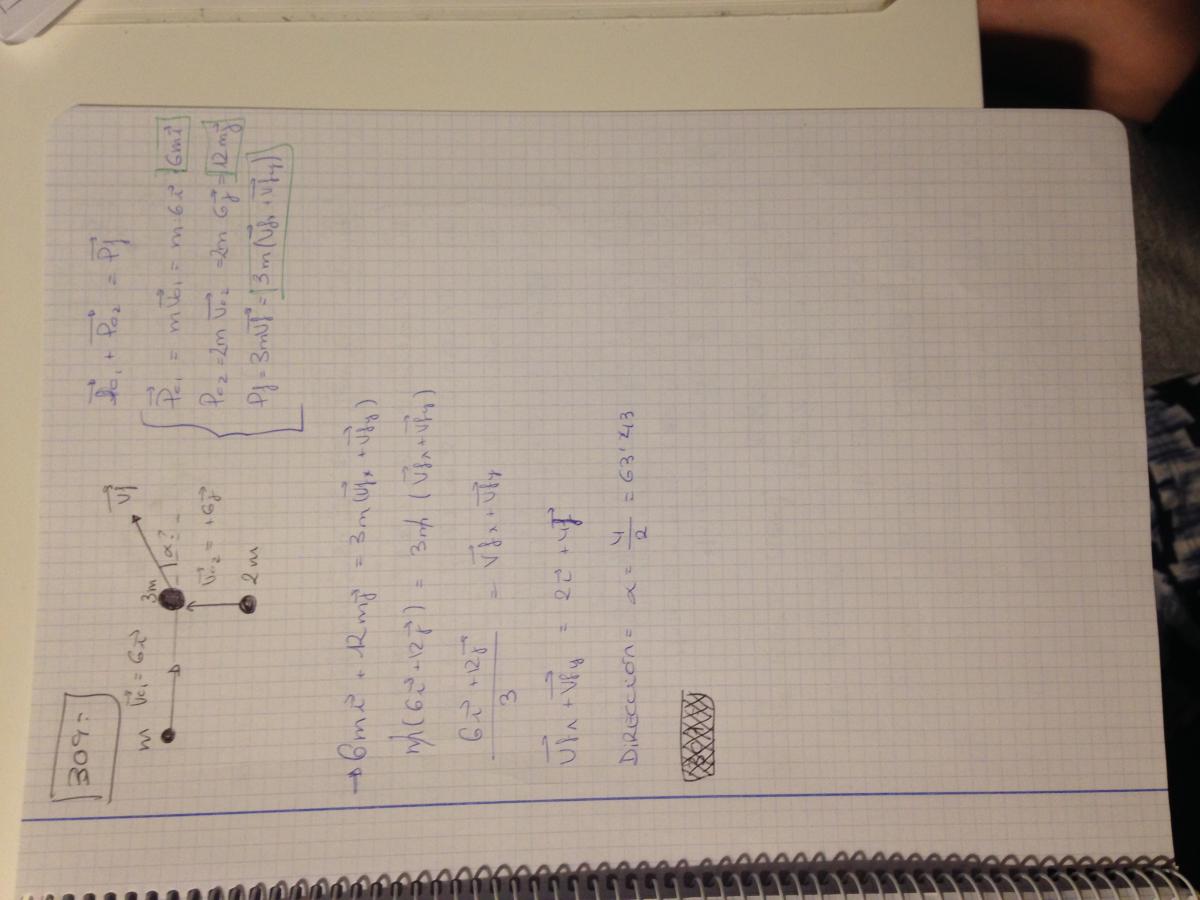 309=
m v⃗o₁ = 6i⃗
3m
v⃗f
α?
v⃗o₂ = +6j⃗
2m
P⃗o₁ + P⃗o₂ = P⃗f
P⃗o₁ = m v⃗o₁ = m 6i⃗ = 6mi⃗
Po₂ = 2m v⃗o₂ = 2m 6j⃗ = 12mj⃗
Pf = 3m v⃗f = 3m(v⃗fx + v⃗fy)
→ 6mi⃗ + 12mj⃗ = 3m(v⃗fx + v⃗fy)
m(6i⃗ + 12j⃗) = 3m(v⃗fx + v⃗fy)
6i⃗ + 12j⃗ / 3 = v⃗fx + v⃗fy
v⃗fx + v⃗fy = 2i⃗ + 4j⃗
DIRECCIÓN = α = 4/2 = 63'43